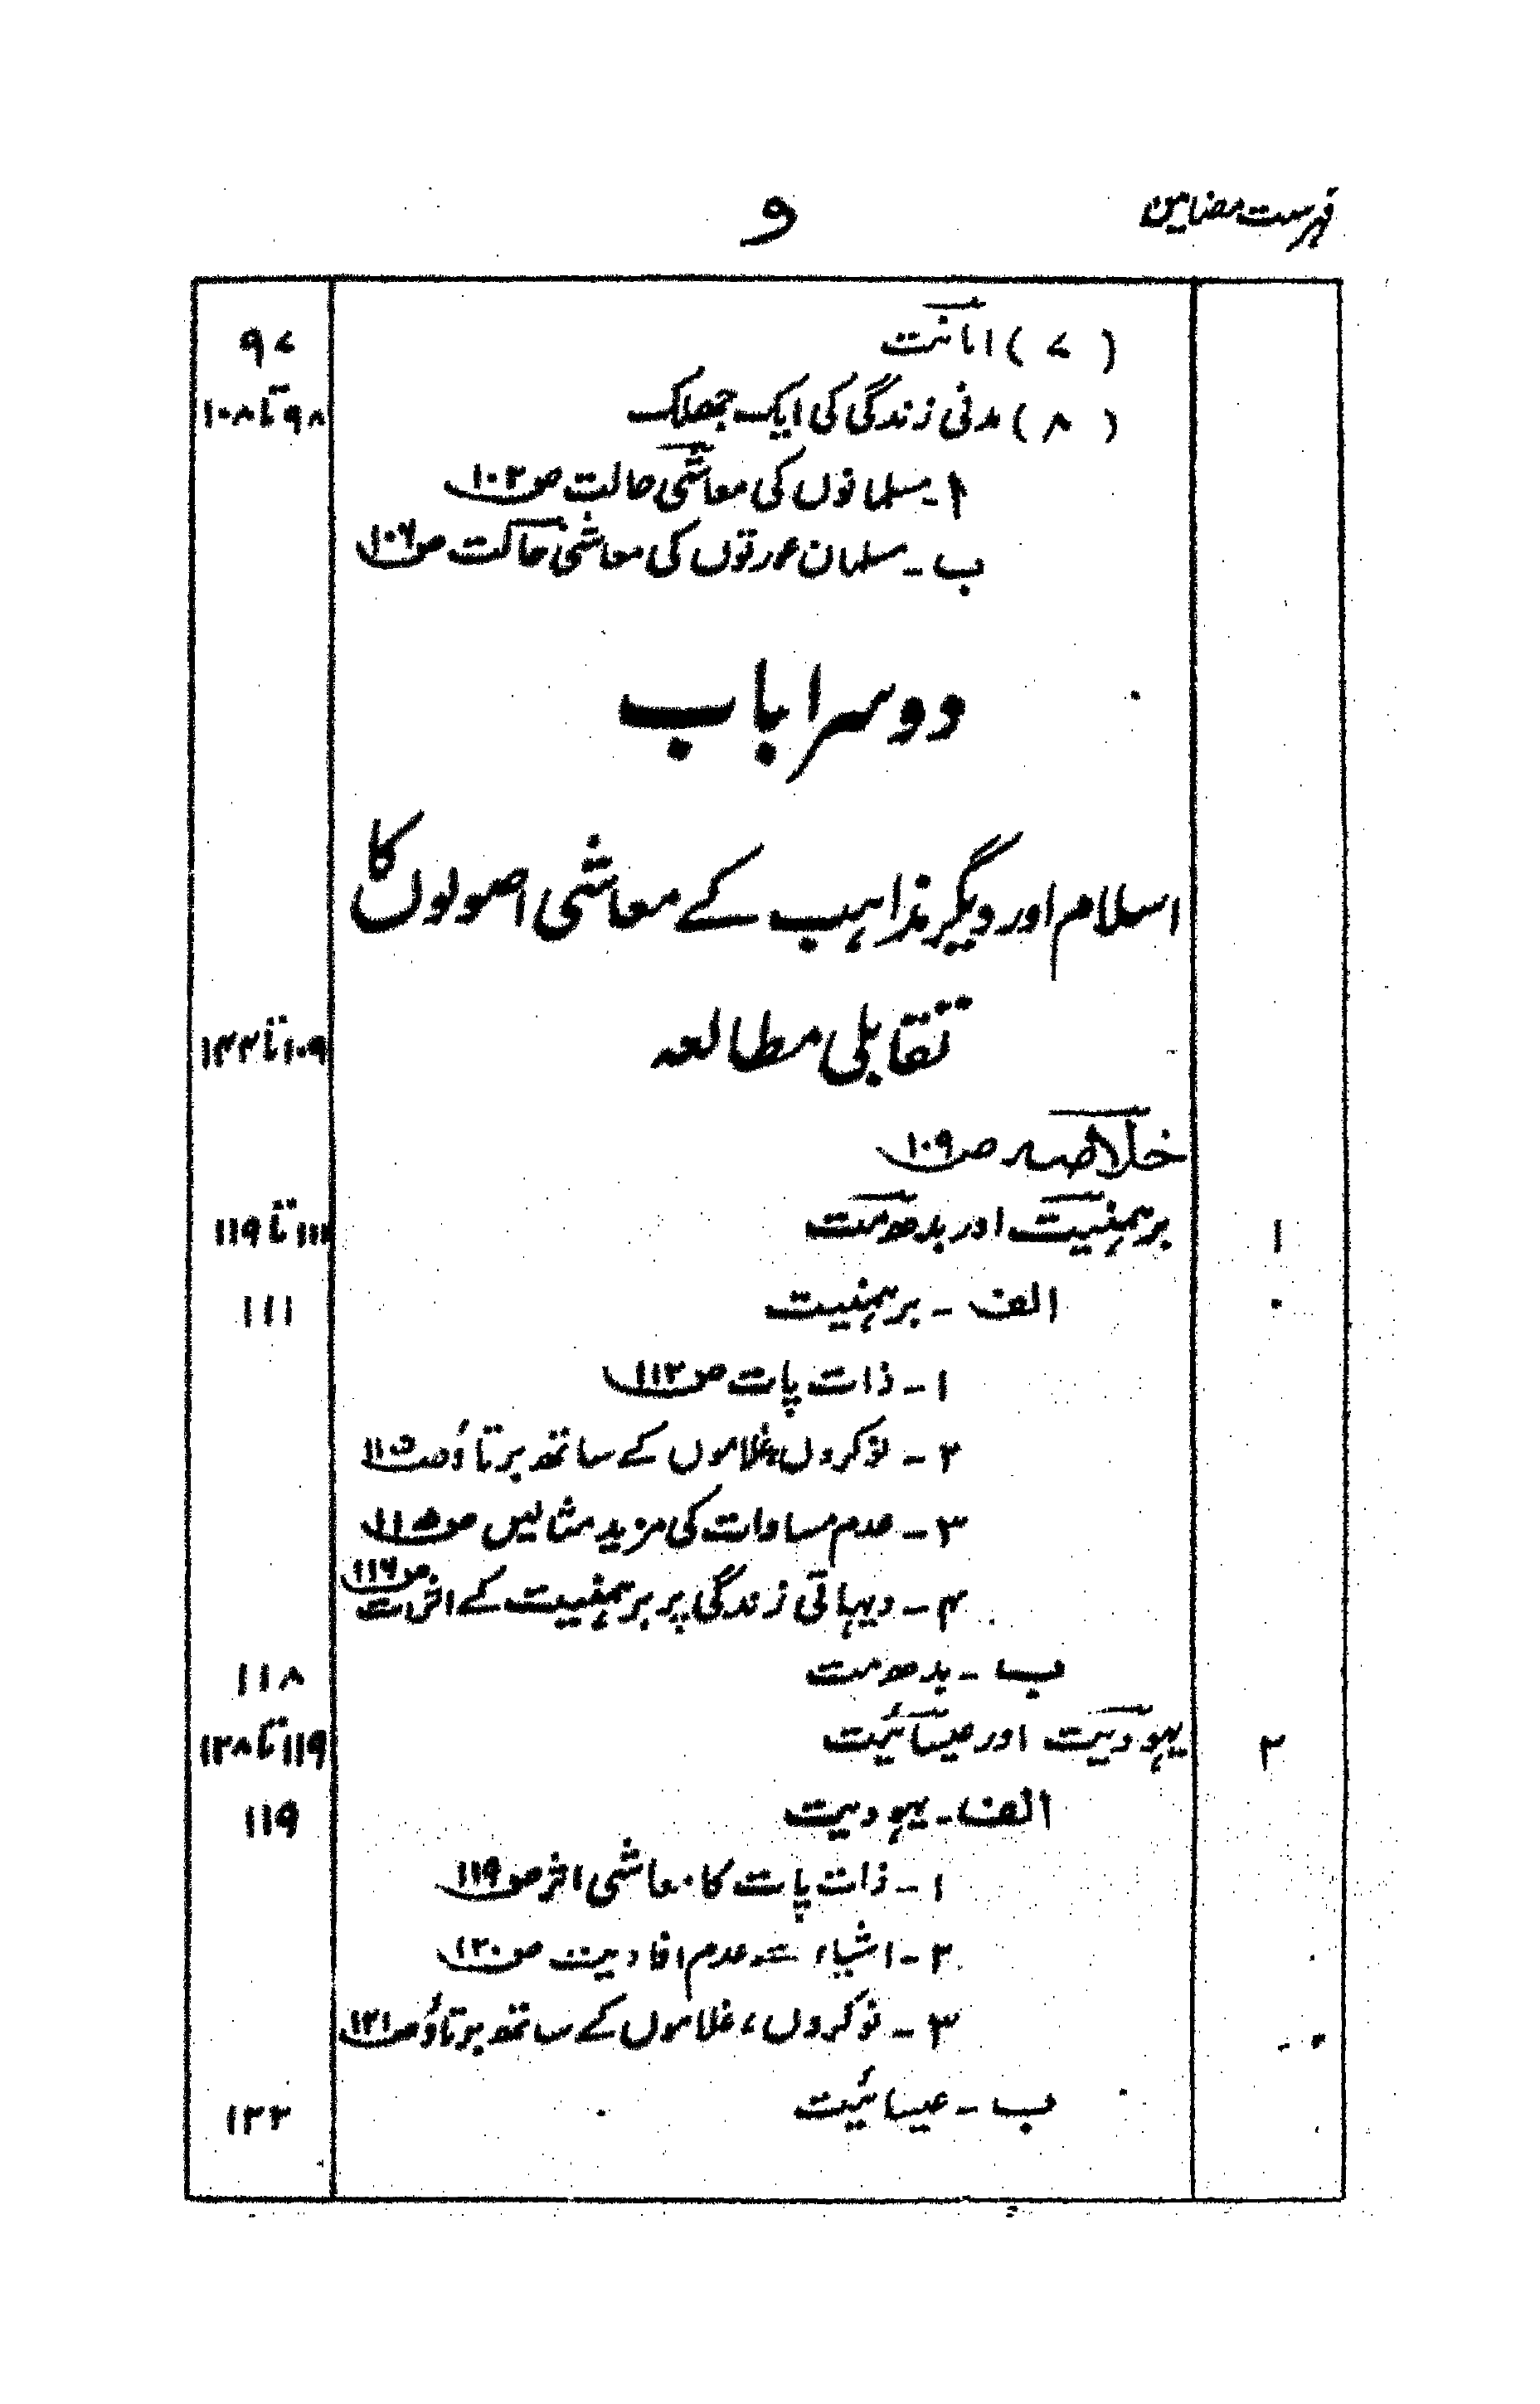 فہرست مضامین
و
( ۷ ) امانت ۹۷
( ۸ ) مدنی زندگی کی ایک جھلک ۹۸ تا ۱۰۸
ا - مسلمانوں کی معاشی حالت ص ۱۰۲
ب - مسلمان عورتوں کی معاشی حالت ص ۱۰۶
دوسرا باب
اسلام اور دیگر مذاہب کے معاشی اصولوں کا
تقابلی مطالعہ ۱۰۹ تا
خلاصہ ص ۱۰۹
۱ برہمنیت اور بدھ مت ۱۱۱ تا ۱۱۹
الف - برہمنیت ۱۱۱
۱ - ذات پات ص ۱۱۲
۲ - نوکروں، غلاموں کے ساتھ برتاؤ ص
۳ - عدم مساوات کی مزید مثالیں ص ۱۱۵
۴ - دیہاتی زندگی پر برہمنیت کے اثرات ص ۱۱۶
ب - بدھ مت ۱۱۸
۲ یہودیت اور عیسائیت ۱۱۹ تا ۱۲۸
الف - یہودیت ۱۱۹
۱ - ذات پات کا معاشی اثر ص ۱۱۹
۲ - اشیاء سے عدم افادیت ص ۱۲۰
۳ - نوکروں، غلاموں کے ساتھ برتاؤ ص ۱۲۱
ب - عیسائیت ۱۲۲